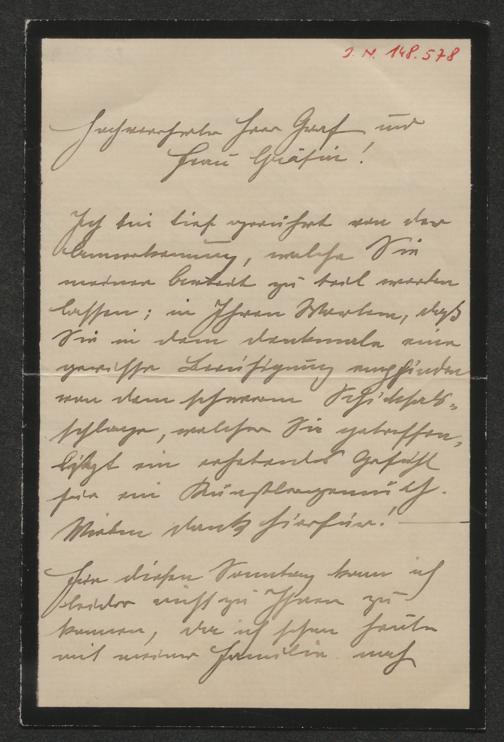 J. N. 148.578
Hochverehrter Herr Graf und
Frau Gräfin!
Ich bin tief gerührt von der
Anerkennung, welche Sie
meiner Arbeit zu teil werden
lassen; in Ihren Worten, daß
Sie in dem Denkmale eine
gewisse Beruhigung empfinden
von dem schweren Schicksals-
schlage, welcher Sie getroffen,
liegt ein erhebendes Gefühl
für ein Künstlergemüth.
Vielen Dank hierfür!
Für diesen Sonntag kann ich
leider nicht zu Ihnen zu
kommen, da ich schon heute
mit meiner Familie nach